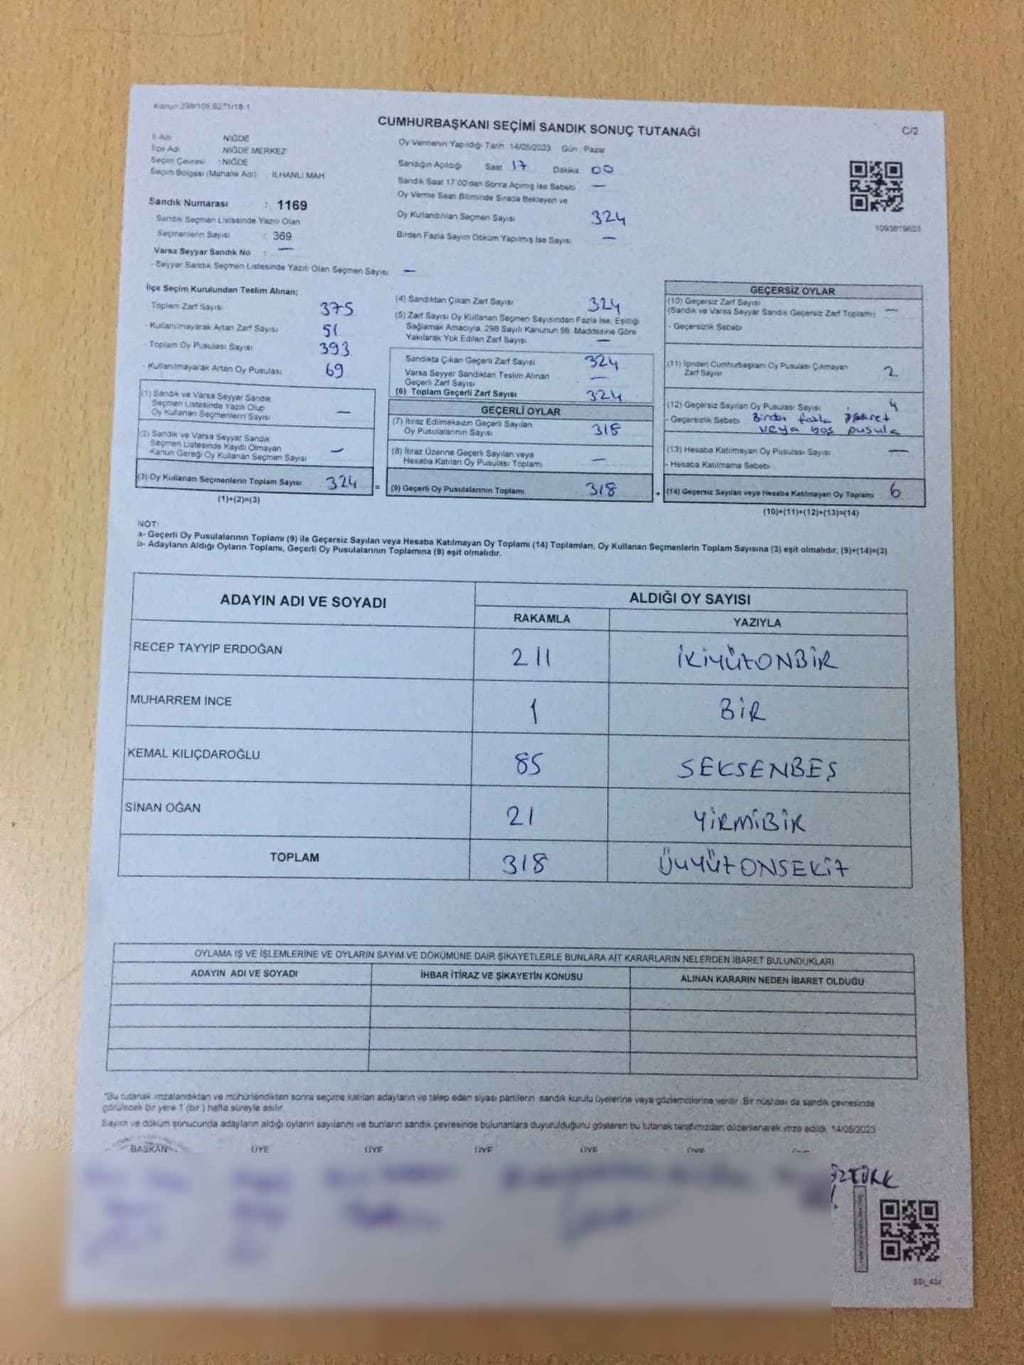 Kanun 298/105,B271/18-1
CUMHURBAŞKANI SEÇİMİ SANDIK SONUÇ TUTANAĞI
C/2
İl Adı : NİĞDE
İlçe Adı : NİĞDE MERKEZ
Seçim Çevresi : NİĞDE
Seçim Bölgesi (Mahalle Adı) : İLHANLI MAH
Sandık Numarası : 1169
Sandık Seçmen Listesinde Yazılı Olan
Seçmenlerin Sayısı : 369
Varsa Seyyar Sandık No : —
Seyyar Sandık Seçmen Listesinde Yazılı Olan Seçmen Sayısı —
Oy Vermenin Yapıldığı Tarih 14/05/2023 Gün Pazar
Sandığın Açıldığı Saat 17 Dakika 00
Sandık Saat 17:00'den Sonra Açılmış İse Sebebi —
Oy Verme Saati Bitiminde Sırada Bekleyen ve
Oy Kullandırılan Seçmen Sayısı 324
Birden Fazla Sayım Döküm Yapılmış İse Sayısı —
1093819603
İlçe Seçim Kurulundan Teslim Alınan;
- Toplam Zarf Sayısı 375
- Kullanılmayarak Artan Zarf Sayısı 51
- Toplam Oy Pusulası Sayısı 393
- Kullanılmayarak Artan Oy Pusulası 69
(1) Sandık ve Varsa Seyyar Sandık
Seçmen Listesinde Yazılı Olup
Oy Kullanan Seçmenlerin Sayısı —
(2) Sandık ve Varsa Seyyar Sandık
Seçmen Listesinde Kayıtlı Olmayan
Kanun Gereği Oy Kullanan Seçmen Sayısı —
(3) Oy Kullanan Seçmenlerin Toplam Sayısı 324 =
(1)+(2)=(3)
(4) Sandıktan Çıkan Zarf Sayısı 324
(5) Zarf Sayısı Oy Kullanan Seçmen Sayısından Fazla İse, Eşitliği
Sağlamak Amacıyla, 298 Sayılı Kanunun 98. Maddesine Göre
Yakılarak Yok Edilen Zarf Sayısı —
Sandıkta Çıkan Geçerli Zarf Sayısı 324
Varsa Seyyar Sandıktan Teslim Alınan
Geçerli Zarf Sayısı —
(6) Toplam Geçerli Zarf Sayısı 324
GEÇERLİ OYLAR
(7) İtiraz Edilmeksizin Geçerli Sayılan
Oy Pusulalarının Sayısı 318
(8) İtiraz Üzerine Geçerli Sayılan veya
Hesaba Katılan Oy Pusulası Toplamı —
(9) Geçerli Oy Pusulalarının Toplamı 318 +
GEÇERSİZ OYLAR
(10) Geçersiz Zarf Sayısı
(Sandık ve Varsa Seyyar Sandık Geçersiz Zarf Toplamı) —
- Geçersizlik Sebebi
(11) İçinden Cumhurbaşkanı Oy Pusulası Çıkmayan
Zarf Sayısı 2
(12) Geçersiz Sayılan Oy Pusulası Sayısı 4
- Geçersizlik Sebebi Birden fazla işaret
veya boş pusula
(13) Hesaba Katılmayan Oy Pusulası Sayısı —
- Hesaba Katılmama Sebebi
(14) Geçersiz Sayılan veya Hesaba Katılmayan Oy Toplamı 6
(10)+(11)+(12)+(13)=(14)
NOT:
a- Geçerli Oy Pusulalarının Toplamı (9) ile Geçersiz Sayılan veya Hesaba Katılmayan Oy Toplamı (14) Toplamları, Oy Kullanan Seçmenlerin Toplam Sayısına (3) eşit olmalıdır, (9)+(14)=(3)
b- Adayların Aldığı Oyların Toplamı, Geçerli Oy Pusulalarının Toplamına (9) eşit olmalıdır.
ADAYIN ADI VE SOYADI
ALDIĞI OY SAYISI
RAKAMLA YAZIYLA
RECEP TAYYİP ERDOĞAN 211 İKİYÜZONBİR
MUHARREM İNCE 1 BİR
KEMAL KILIÇDAROĞLU 85 SEKSENBEŞ
SİNAN OĞAN 21 YİRMİBİR
TOPLAM 318 ÜÇYÜZONSEKİZ
OYLAMA İŞ VE İŞLEMLERİNE VE OYLARIN SAYIM VE DÖKÜMÜNE DAİR ŞİKAYETLERLE BUNLARA AİT KARARLARIN NELERDEN İBARET BULUNDUKLARI
ADAYIN ADI VE SOYADI İHBAR İTİRAZ VE ŞİKAYETİN KONUSU ALINAN KARARIN NEDEN İBARET OLDUĞU
"Bu tutanak imzalandıktan ve mühürlendikten sonra seçime katılan adayların ve talep eden siyasi partilerin sandık kurulu üyelerine veya gözlemcilerine verilir. Bir nüshası da sandık çevresinde
görülecek bir yere 1 (bir ) hafta süreyle asılır.
Sayım ve döküm sonucunda adayların aldığı oyların sayılarını ve bunların sandık çevresinde bulunanlara duyurulduğunu gösteren bu tutanak tarafımızdan düzenlenerek imza edildi. 14/05/2023
BAŞKAN ÜYE ÜYE ÜYE ÜYE ÜYE ÜYE
ÖZTÜRK